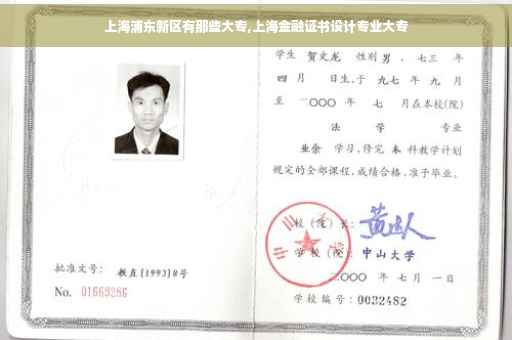 上海浦东新区有那些大专,上海金融证书设计专业大专
学生 贺文龙 性别 男 、七三 年
四 月 日生,于 九七 年 九 月
至 二〇〇〇 年 七 月在本校(院)
法 学 专业
业余 学习,修完 本 科教学计划
规定的全部课程,成绩合格,准予毕业。
校(院)长:
学校(院): 中山大学
二〇〇〇 年 七 月 一 日
学校编号: 0032482
批准文号: 教直(1993)8号
No. 01669286